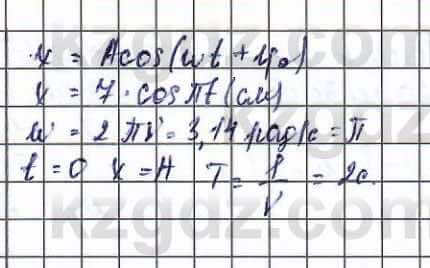 x = Acos(ωt + φ₀)
x = 7 · cosπt (см)
ω = 2πν = 3,14 рад/с = π
t = 0 x = A T = 1/ν = 2с.
kzgdz.com